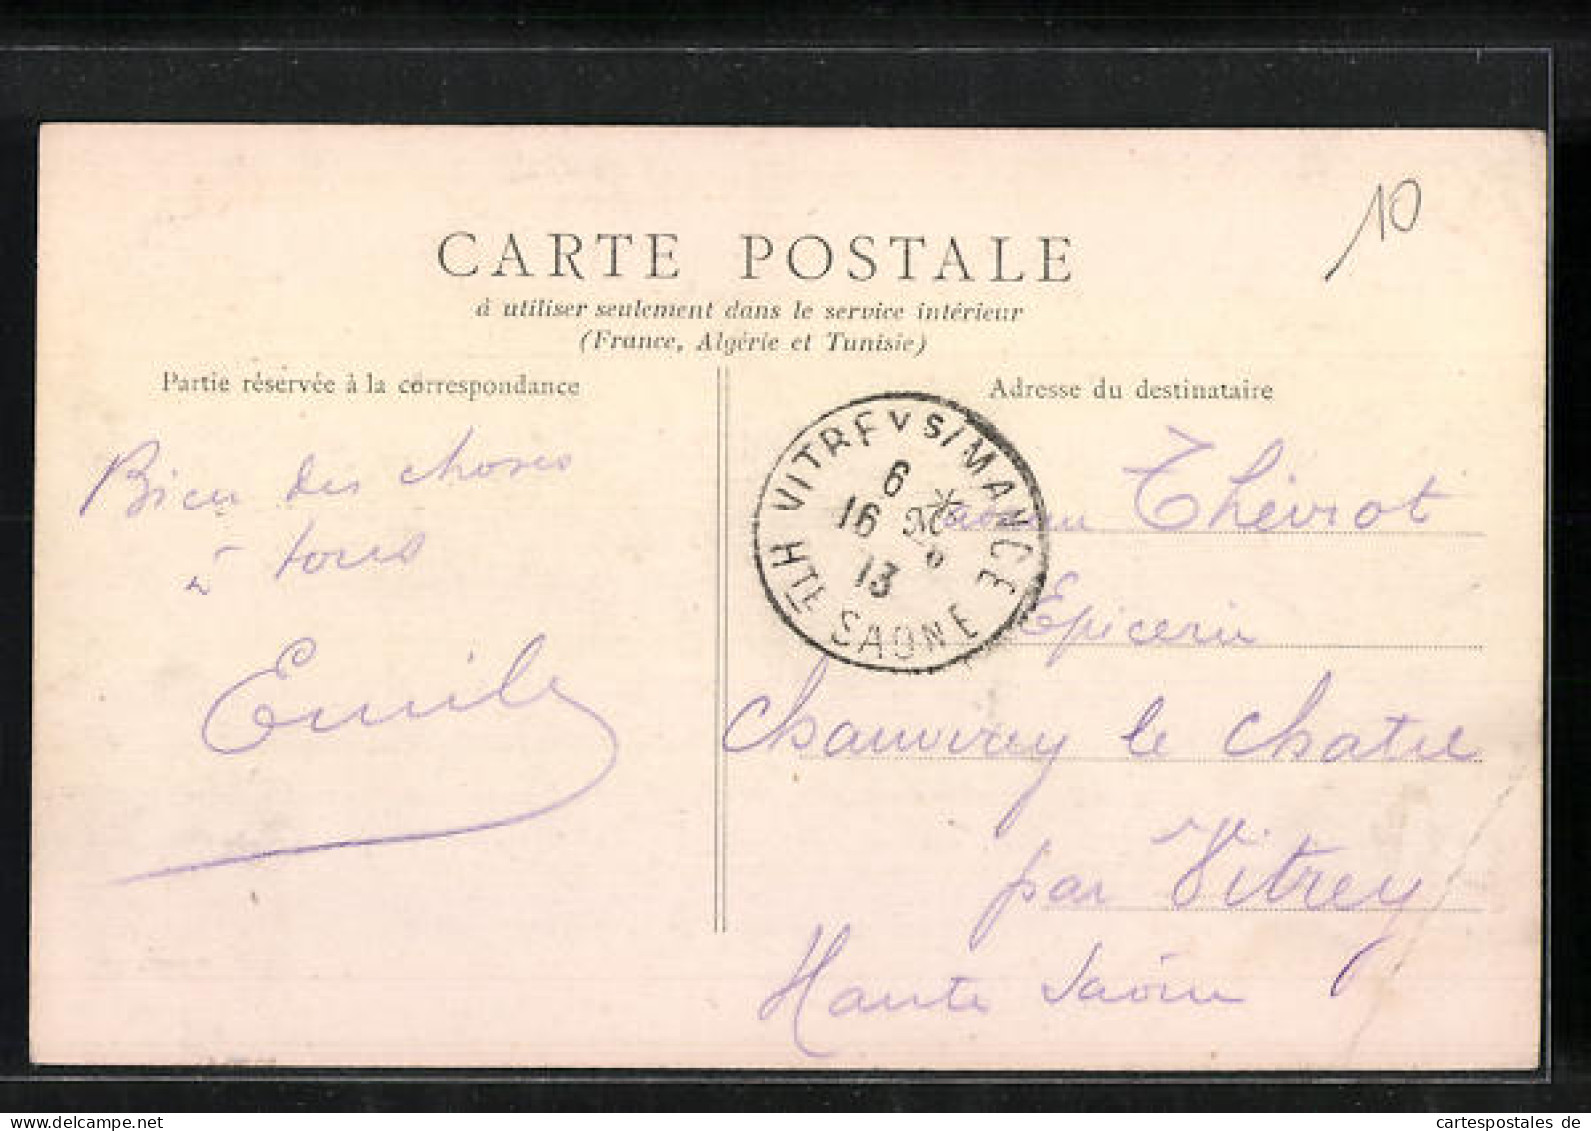 10
CARTE POSTALE
à utiliser seulement dans le service intérieur
(France, Algérie et Tunisie)
Partie réservée à la correspondance
Adresse du destinataire
Bien des choses
à tous
Emile
VITREY S/MANCE
6
16
13
HTE SAONE
Thévrot
Epicerie
Chauvirey le Chatel
par Vitrey
Haute Saône
cartespostales de